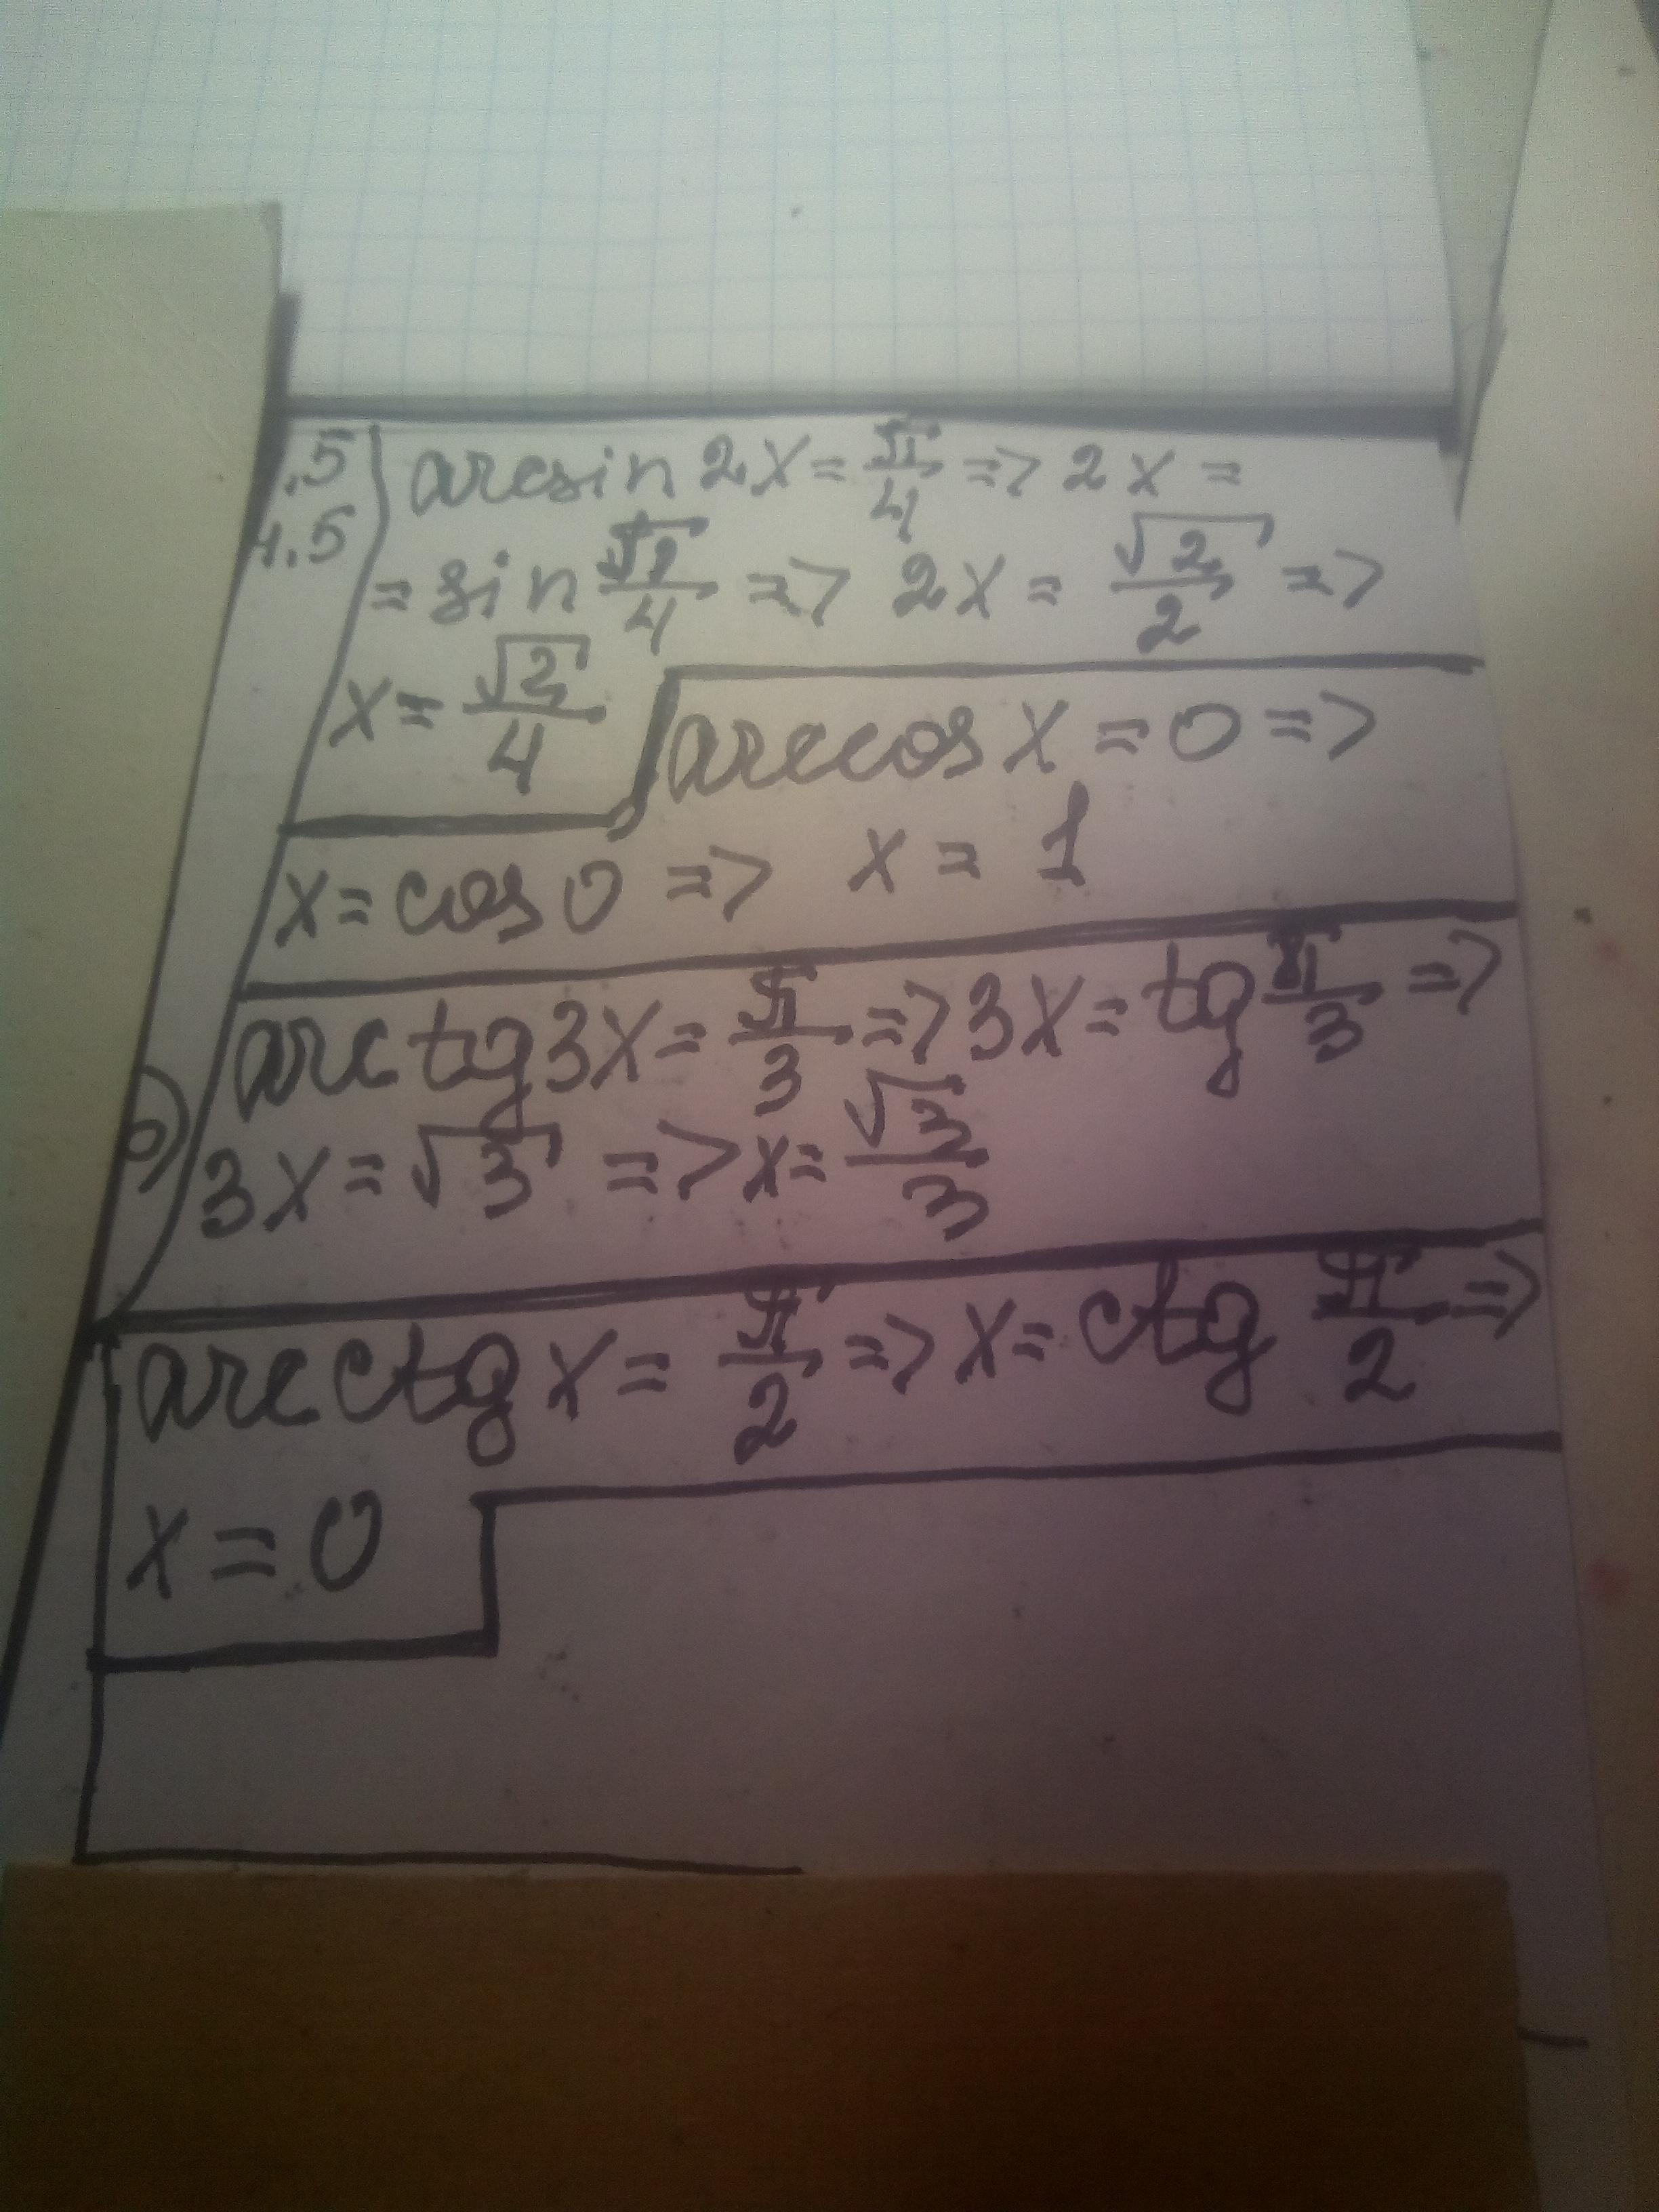 .5 arcsin 2x = π/4 => 2x =
4.5 = sin π/4 => 2x = √2/2 =>
x = √2/4
arccos x = 0 =>
x = cos 0 => x = 1
arctg 3x = π/3 => 3x = tg π/3 =>
3x = √3 => x = √3/3
arcctg x = π/2 => x = ctg π/2 =>
x = 0